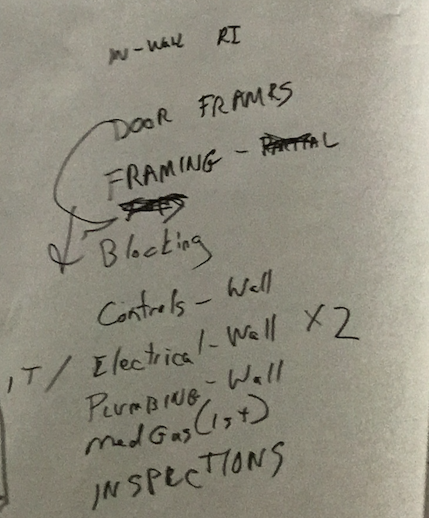 IN-WALL RI
DOOR FRAMES
FRAMING - PARTIAL
Blocking
Controls - Wall
IT / Electrical - Wall X2
PLUMBING - Wall
Med Gas (1st)
INSPECTIONS